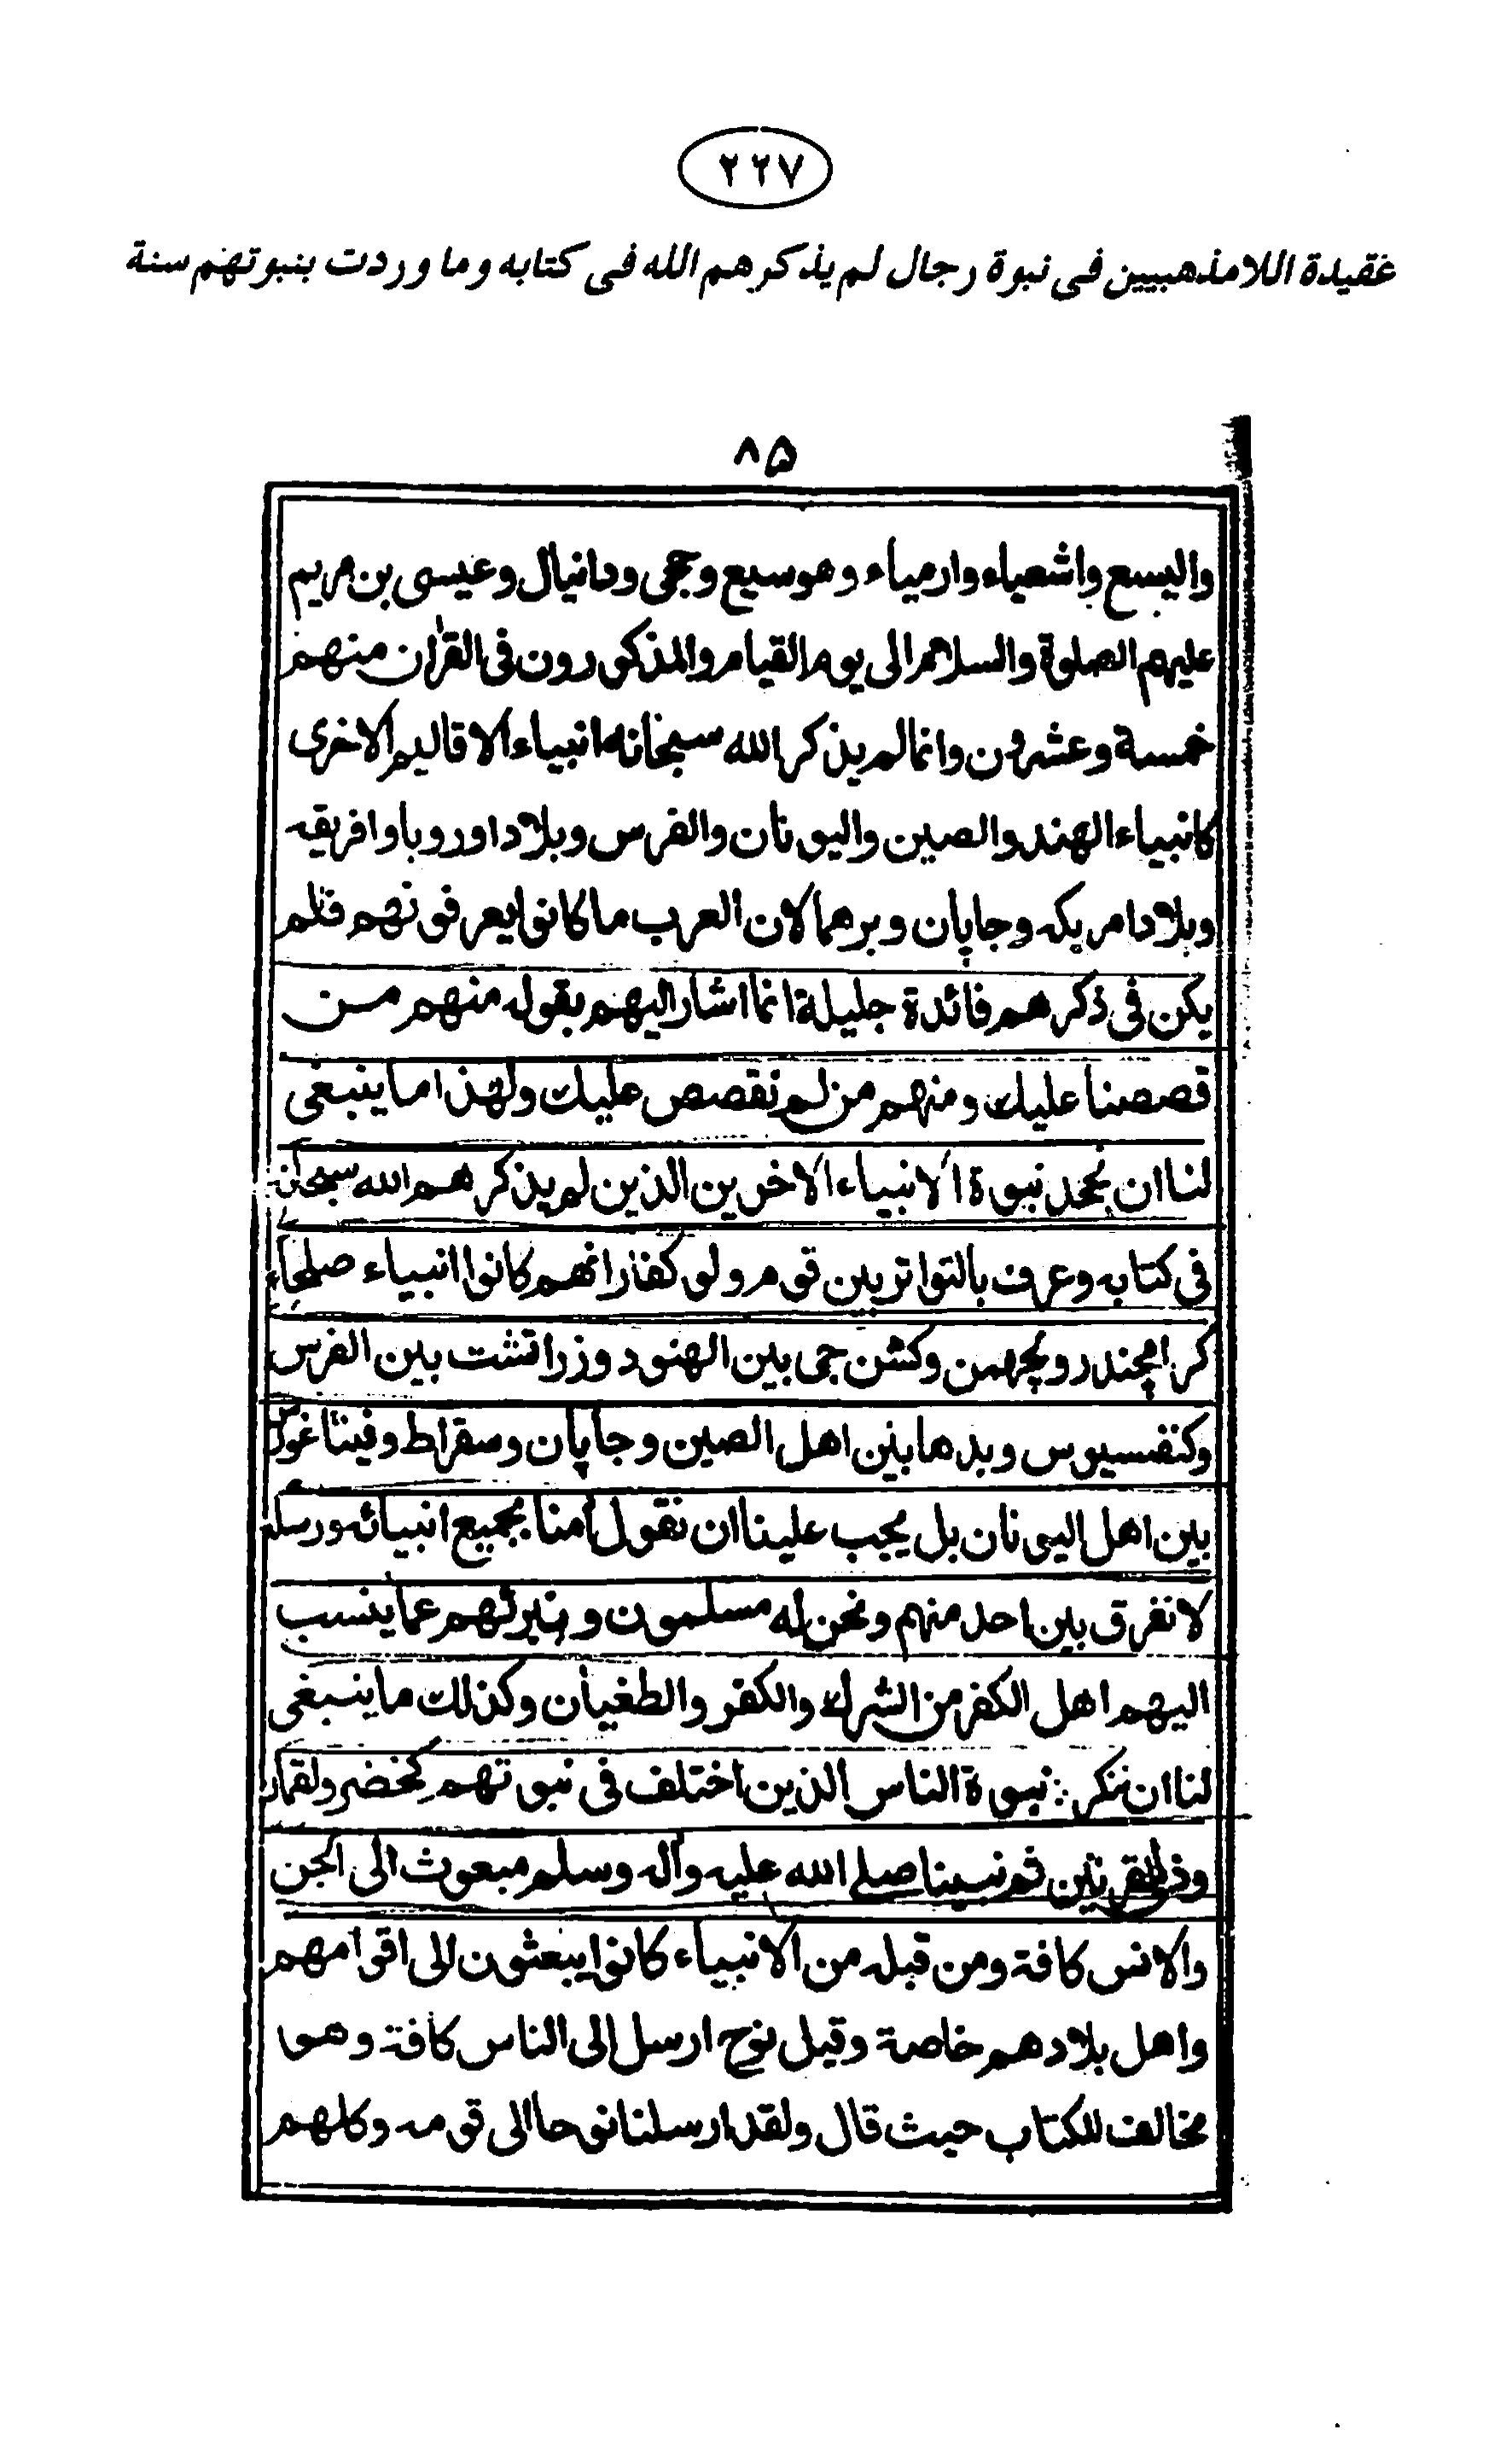 ٢٢٧
عقيدة اللامذهبيين فى نبوة رجال لم يذكرهم الله فى كتابه وما وردت بنبوتهم سنة
٨۵
واليسع واشعياء وارمياء وهوسيع وحجى ودانيال وعيسى بن مريم
عليهم الصلوة والسلام الى يوم القيام والمذكورون فى القراٰن منهم
خمسة وعشرون وانما لم يذكر الله سبحانه انبياء الاقاليم الاخرى
كانبياء الهند والصين واليونان والفرس وبلاد اوروبا وافريقه
وبلاد امريكه وجاپان وبرهما لان العرب ما كانوا يعرفونهم فلم
يكن فى ذكرهم فائدة جليلة انما اشار اليهم بقوله منهم من
قصصنا عليك ومنهم من لم نقصص عليك ولهذا ما ينبغى
لنا ان نجحد نبوة الانبياء الاخرين الذين لم يذكرهم الله سبحانه
فى كتابه وعرف بالتواتر بين قوم ولو كفار انهم كانوا انبياء صلحاء
كرامچندر ولچهمن وكشن جى بين الهنود وزراتشت بين الفرس
وكنفسيوس وبدها بين اهل الصين وجاپان وسقراط وفيثاغورس
بين اهل اليونان بل يجب علينا ان نقول اٰمنا بجميع انبيائه ورسله
لا نفرق بين احد منهم ونحن له مسلمون ونبرئهم عما ينسب
اليهم اهل الكفر من الشرك والكفر والطغيان وكذلك ما ينبغى
لنا ان ننكر نبوة الناس الذين اختلف فى نبوتهم كخضر ولقمان
وذى القرنين ثم نبينا صلى الله عليه وآله وسلم مبعوث الى الجن
والانس كافة ومن قبله من الانبياء كانوا يبعثون الى اقوامهم
واهل بلادهم خاصة وقيل نوح ارسل الى الناس كافة وهو
مخالف للكتاب حيث قال ولقد ارسلنا نوحا الى قومه وكلهم